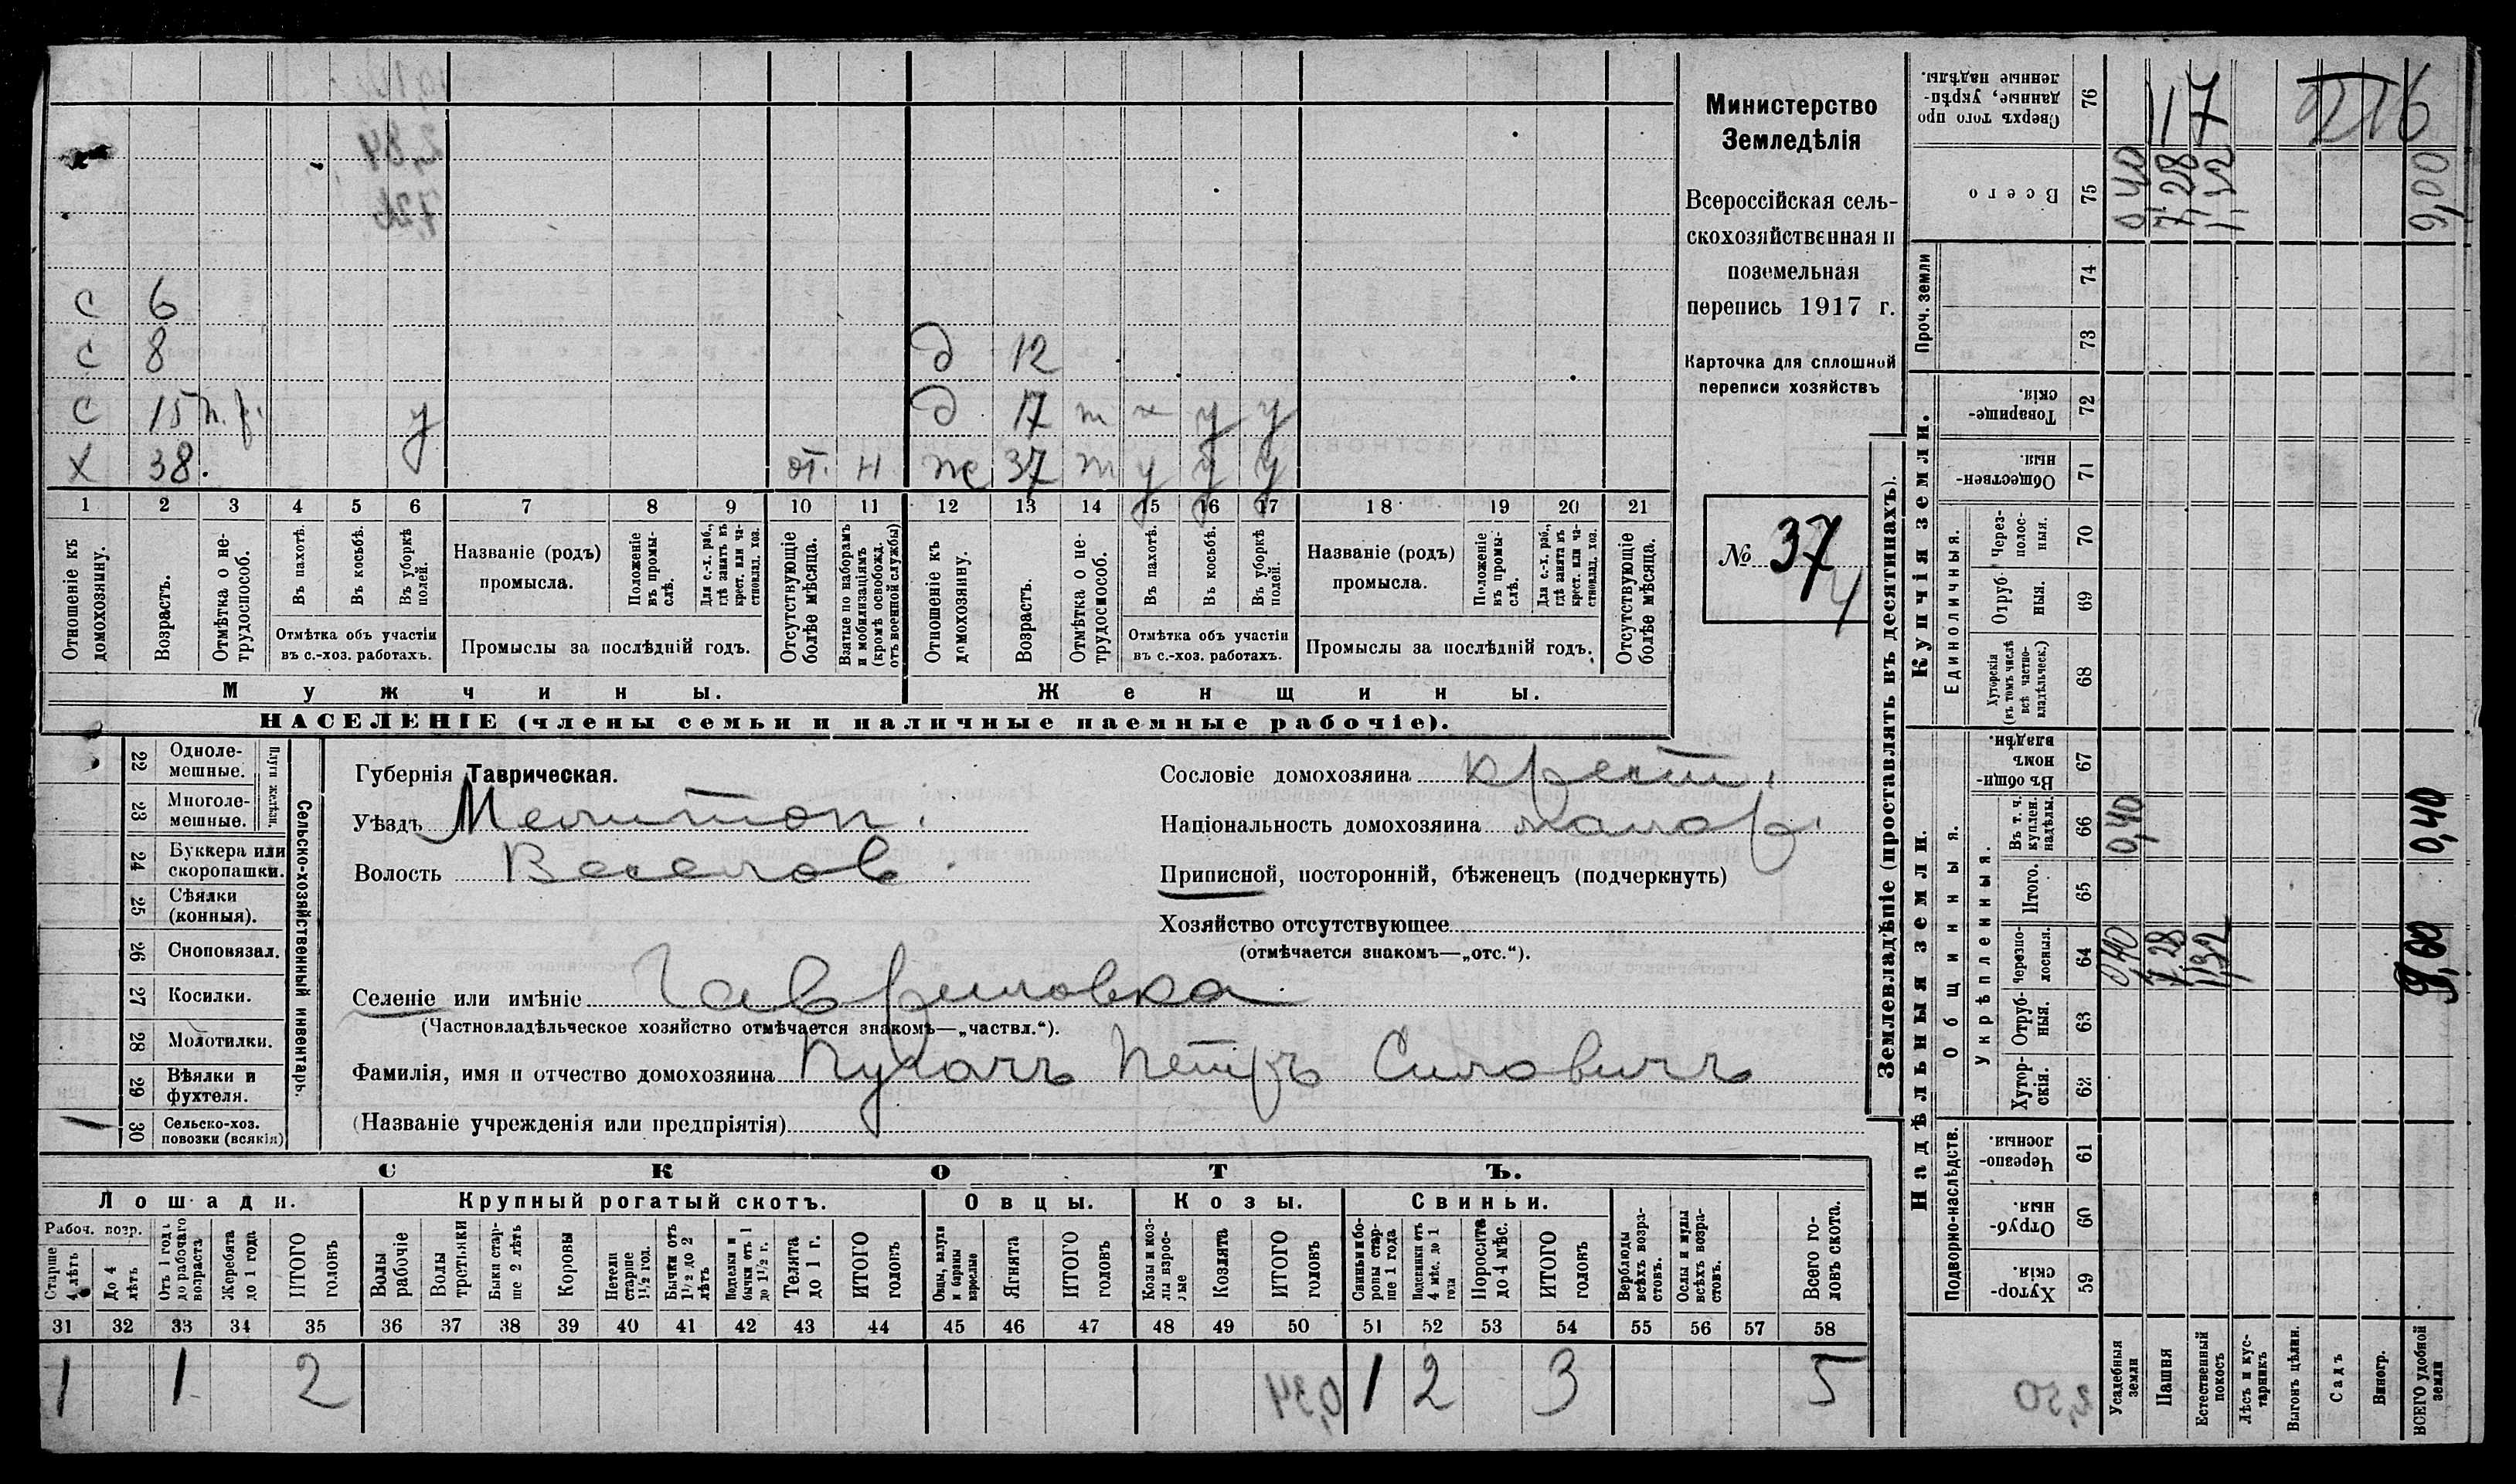 Министерство
Земледѣлія
Всероссійская сель-
скохозяйственная и
поземельная
перепись 1917 г.
Карточка для сплошной
переписи хозяйствъ
№ 37
С 6
С 8 д 12
С 15 п. р. у д 17 т х у у
Х 38. от. н же 37 т у у у
1 2 3 4 5 6 7 8 9 10 11 12 13 14 15 16 17 18 19 20 21
Отношеніе къ домохозяину.
Возрастъ.
Отмѣтка о не-трудоспособ.
Въ пахотѣ.
Въ косьбѣ.
Въ уборкѣ полей.
Отмѣтка объ участіи
въ с.-хоз. работахъ.
Названіе (родъ)
промысла.
Положеніе въ промы-слѣ.
Для с.-х. раб., гдѣ занятъ въ крест. или ча-стновлад. хоз.
Промыслы за послѣдній годъ.
Отсутствующіе болѣе мѣсяца.
Взятые по наборамъ и мобилизаціямъ (кромѣ освобожд. отъ военной службы)
Отношеніе къ домохозяину.
Возрастъ.
Отмѣтка о не-трудоспособ.
Въ пахотѣ.
Въ косьбѣ.
Въ уборкѣ полей.
Отмѣтка объ участіи
въ с.-хоз. работахъ.
Названіе (родъ)
промысла.
Положеніе въ промы-слѣ.
Для с.-х. раб., гдѣ занята въ крест. или ча-стновлад. хоз.
Промыслы за послѣдній годъ.
Отсутствующіе болѣе мѣсяца.
Мужчины. Женщины.
НАСЕЛЕНІЕ (члены семьи и наличные наемные рабочіе).
Сельско-хозяйственный инвентарь.
Плуги желѣзн.
22 Одноле-мешные.
23 Многоле-мешные.
24 Буккера или скоропашки.
25 Сѣялки (конныя).
26 Сноповязал.
27 Косилки.
28 Молотилки.
29 Вѣялки и фухтеля.
30 Сельско-хоз. повозки (всякія)
Губернія Таврическая.
Уѣздъ Мелитоп.
Волость Веселов.
Сословіе домохозяина крест.
Національность домохозяина малор.
Приписной, посторонній, бѣженецъ (подчеркнуть)
Хозяйство отсутствующее
(отмѣчается знакомъ—„отс.“).
Селеніе или имѣніе Гавриловка
(Частновладѣльческое хозяйство отмѣчается знакомъ—„частвл.“).
Фамилія, имя и отчество домохозяина Пугачъ Петръ Силовичъ
(Названіе учрежденія или предпріятія)
СКОТЪ.
Лошади. Крупный рогатый скотъ. Овцы. Козы. Свиньи.
Рабоч. возр.
Старше 4 лѣтъ
До 4 лѣтъ
Отъ 1 года до рабочаго возраста
Жеребята до 1 года
ИТОГО головъ
Волы рабочіе
Волы третьяки
Быки стар-ше 2 лѣтъ
Коровы
Нетели старше 1½ год.
Бычки отъ 1½ до 2 лѣтъ
Подтелки и бычки отъ 1 до 1½ г.
Телята до 1 г.
ИТОГО головъ
Овцы, валухи и бараны взрослые
Ягнята
ИТОГО головъ
Козы и коз-лы взрос-лые
Козлята
ИТОГО головъ
Свиньи и бо-ровы стар-ше 1 года
Подсвинки отъ 4 мѣс. до 1 года
Поросята до 4 мѣс.
ИТОГО головъ
Верблюды всѣхъ возра-стовъ.
Ослы и мулы всѣхъ возра-стовъ.
Всего го-ловъ скота.
31 32 33 34 35 36 37 38 39 40 41 42 43 44 45 46 47 48 49 50 51 52 53 54 55 56 57 58
1 1 2 1 2 3 5
Землевладѣніе (проставлять въ десятинахъ).
Надѣльныя земли. Купчія земли. Проч. земли
Подворно-наслѣдств.
Общинныя.
Укрѣпленныя.
Единоличныя.
Хутор-скія. 59
Отруб-ныя. 60
Черезпо-лосныя. 61
Хутор-скія. 62
Отруб-ныя. 63
Черезпо-лосныя. 64 0,40 7,28 1,32 9,00
Итого. 65
Въ т. ч. куплен. надѣлы. 66 0,40 0,40
Въ общи-номъ владѣн. 67
Хуторскія (въ томъ числѣ всѣ частно-владѣльческ.) 68
Отруб-ныя. 69
Через-полос-ныя. 70
Обществен-ныя. 71
Товарище-скія. 72
73
74
Всего 75 0,40 7,28 1,32 9,00
Сверхъ того про-данные, укрѣп-ленные надѣлы. 76 117 216
Усадебныя земли
Пашня
Естественный покосъ
Лѣсъ и кус-тарникъ
Выгонъ цѣлин.
Садъ
Виногр.
ВСЕГО удобной земли